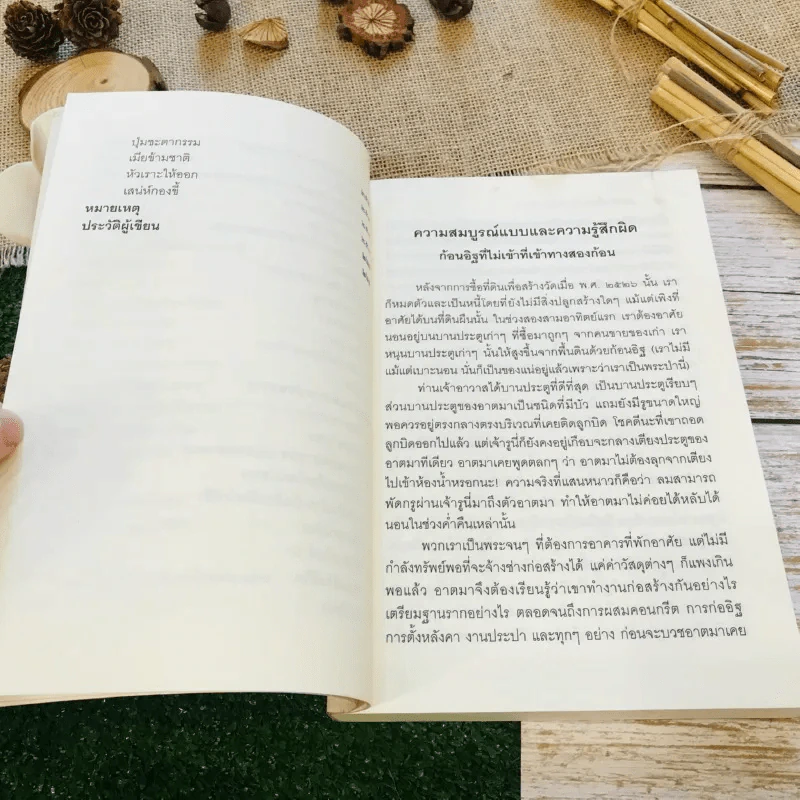 ปุ่มชะตากรรม
เมียข้ามชาติ
หัวเราะให้ออก
เสน่ห์กองขี้
หมายเหตุ
ประวัติผู้เขียน
ความสมบูรณ์แบบและความรู้สึกผิด
ก้อนอิฐที่ไม่เข้าที่เข้าทางสองก้อน
หลังจากการซื้อที่ดินเพื่อสร้างวัดเมื่อ พ.ศ. ๒๕๒๖ นั้น เรา
ก็หมดตัวและเป็นหนี้โดยที่ยังไม่มีสิ่งปลูกสร้างใดๆ แม้แต่เพิงที่
อาศัยได้บนที่ดินผืนนั้น ในช่วงสองสามอาทิตย์แรก เราต้องอาศัย
นอนอยู่บนบานประตูเก่าๆ ที่ซื้อมาถูกๆ จากคนขายของเก่า เรา
หนุนบานประตูเก่าๆ นั้นให้สูงขึ้นจากพื้นดินด้วยก้อนอิฐ (เราไม่มี
แม้แต่เบาะนอน นั่นก็เป็นของแน่อยู่แล้วเพราะว่าเราเป็นพระป่านี่)
ท่านเจ้าอาวาสได้บานประตูที่ดีที่สุด เป็นบานประตูเรียบๆ
ส่วนบานประตูของอาตมาเป็นชนิดที่มีบัว แถมยังมีรูขนาดใหญ่
พอควรอยู่ตรงกลางตรงบริเวณที่เคยติดลูกบิด โชคดีนะที่เขาถอด
ลูกบิดออกไปแล้ว แต่เจ้ารูนี่ก็ยังคงอยู่เกือบจะกลางเตียงประตูของ
อาตมาทีเดียว อาตมาเคยพูดตลกๆ ว่า อาตมาไม่ต้องลุกจากเตียง
ไปเข้าห้องน้ำหรอกนะ! ความจริงที่แสนหนาวก็คือว่า ลมสามารถ
พัดกรูผ่านเจ้ารูนี่มาถึงตัวอาตมา ทำให้อาตมาไม่ค่อยได้หลับได้
นอนในช่วงค่ำคืนเหล่านั้น
พวกเราเป็นพระจนๆ ที่ต้องการอาคารที่พักอาศัย แต่ไม่มี
กำลังทรัพย์พอที่จะจ้างช่างก่อสร้างได้ แค่ค่าวัสดุต่างๆ ก็แพงเกิน
พอแล้ว อาตมาจึงต้องเรียนรู้ว่าเขาทำงานก่อสร้างกันอย่างไร
เตรียมฐานรากอย่างไร ตลอดจนถึงการผสมคอนกรีต การก่ออิฐ
การตั้งหลังคา งานประปา และทุกๆ อย่าง ก่อนจะบวชอาตมาเคย